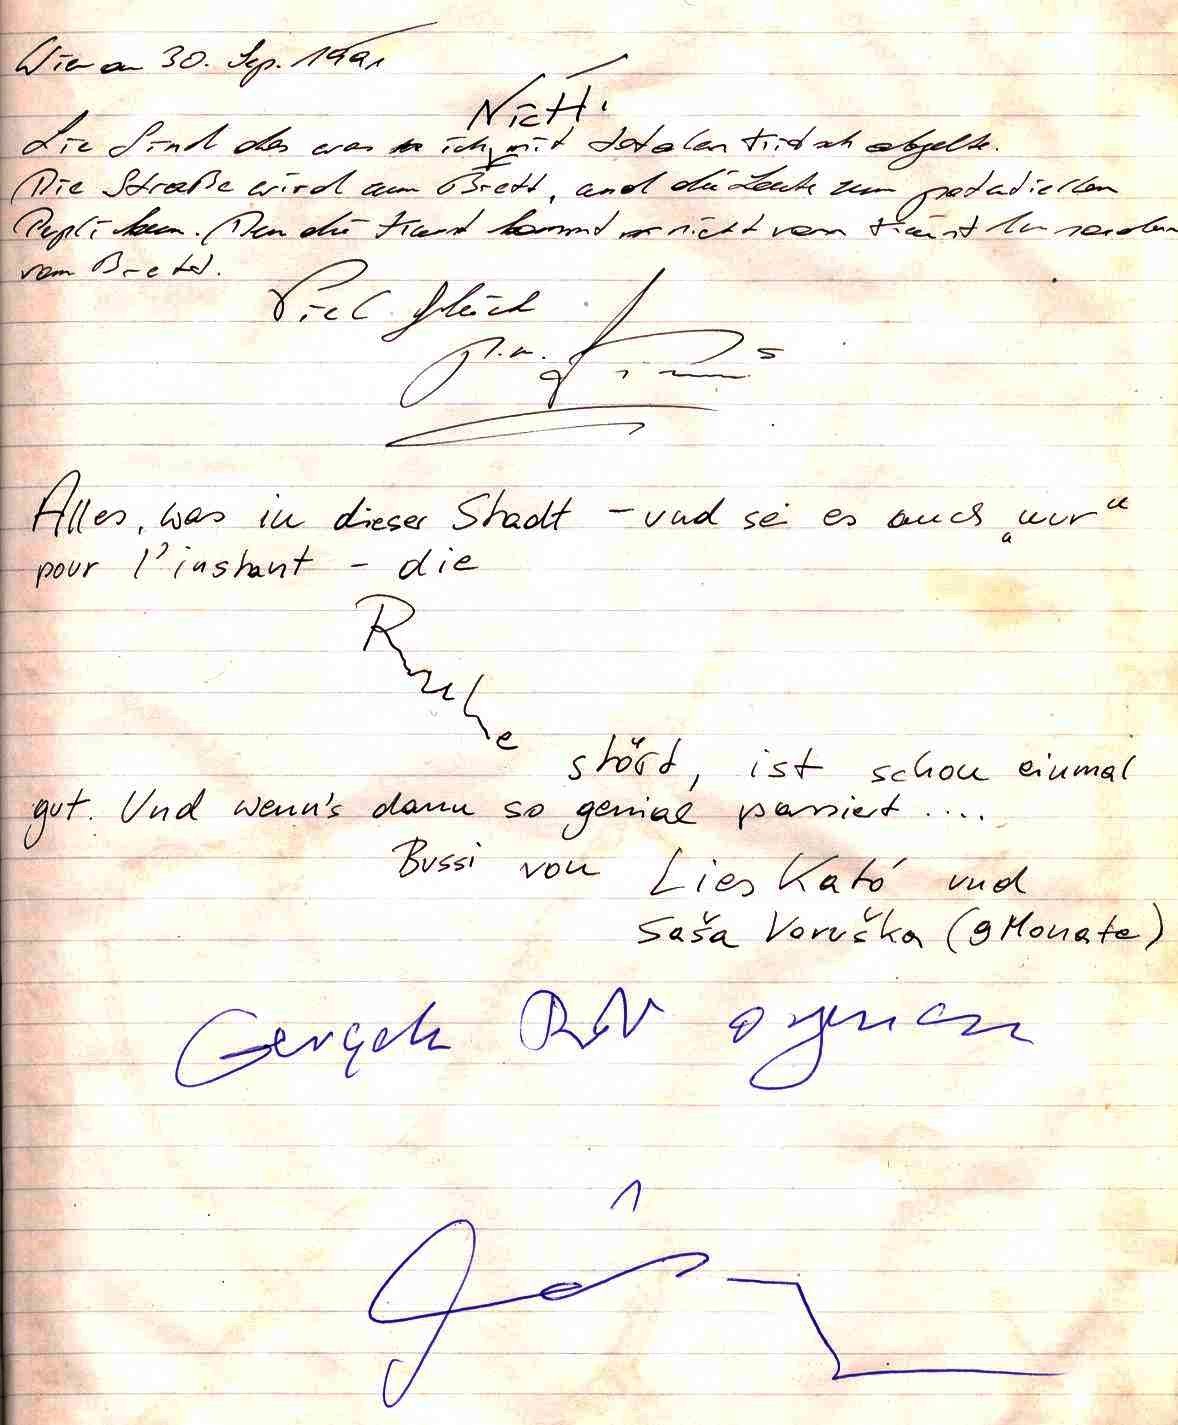 Wien am 30. Sep. 1991
Nicht!
Sie sind das was ich mit totalen Kitsch abgelte.
Die Straße wird zum Brett, und die Leute zum potentiellen
Puplikum. Den die Kunst kommt nicht vom Künstler sondern
vom Brett.
Viel Glück
Alles, was in dieser Stadt – und sei es auch „nur“
pour l'instant – die
Ruhe
stört, ist schon einmal
gut. Und wenn's dann so genial passiert ....
Bussi von Lies Kató und
Saša Voruška (9 Monate)
Gerçek